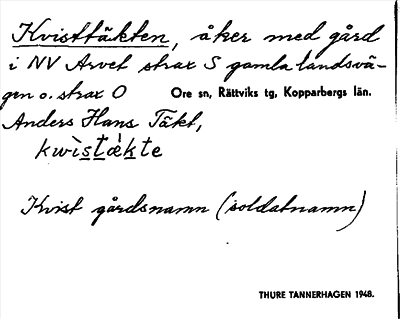 Kvisttäkten, åker med gård
i NV Arvet strax S gamla landsvä-
gen o. strax O Ore sn, Rättviks tg, Kopparbergs län.
Anders Hans Täkt,
kwìstàk̀te
Kvist gårdsnamn (soldatnamn)
THURE TANNERHAGEN 1948.